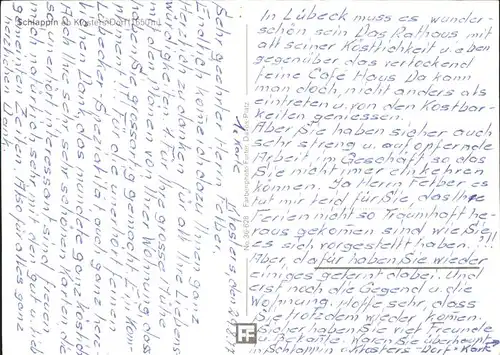 Schlappin ob Klosters-Dorf (1650 m)
Klosters den
Sehr geehrter Herr Felber,
Endlich komme ich dazu Ihnen ganz
Herzlich zu danken für all Ihre Liebens
u. für Ihre grosse Mühe
mit den Plänen von Ihrer Wohnung, dass
haben Sie grossartig gemacht. Ein Kom
pliment!! Für die
Lübecker Spezialität auch ganz herz
lichen Dank, das mundete ganz köstlich.
Auch Ihre sehr sehr schönen Karten, die
so äusserst interessant sind freuen
mich natürlich sehr mit den gut u. lieb
gemeinten Zeilen. Also für alles ganz
herzlichen Dank.
No. 36 628 Farbenphoto Furter, Davos Platz
In Lübeck muss es wunder-
schön sein Das Rathaus mit
all seiner Köstlichkeit u. eben
gegenüber das verlockend
feine Café Haus Da kann
man doch, nicht anders als
eintreten u. von den Kostbar-
keiten geniessen.
Aber Sie haben sicher auch
sehr streng u. aufopfernde
Arbeit, im Geschäft so das
Sie nicht imer einkehren
können. Ja Herrn Felber es
tut mir leid für Sie, das Ihre
Ferien nicht so Traumhaft he-
raus gekomen sind wie Sie
es sich vorgestellt haben. !!!
Aber, dafür haben Sie wieder
einiges gelernt dabei. Und
erst noch die Gegend u. die
Wohnung. Hoffe sehr, dass
Sie trotzdem wieder komen.
Sicher haben Sie viel Freunde
u. Bekannte. Waren Sie überhaupt
in Schlappin ob Klosters-Dorf